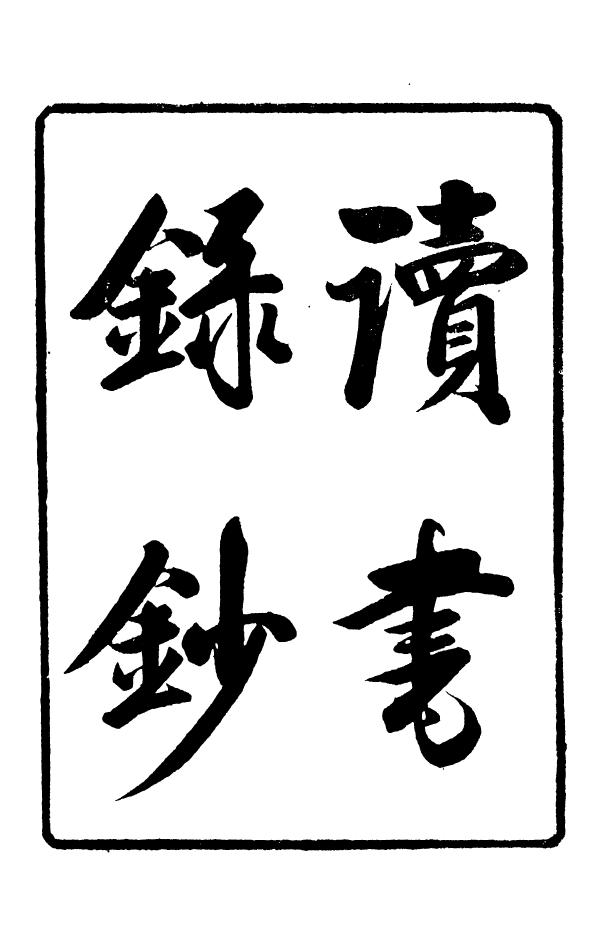 讀書
錄鈔